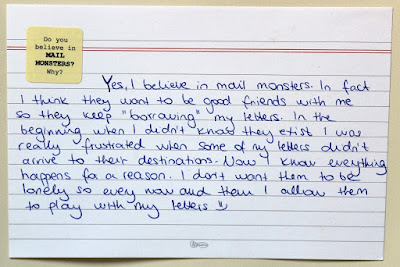 Do you
believe in
MAIL
MONSTERS?
Why?
Yes, I believe in mail monsters. In fact
I think they want to be good friends with me
so they keep "borrowing" my letters. In the
beginning when I didn't know they exist I was
really frustrated when some of my letters didn't
arrive to their destinations. Now I know everything
happens for a reason. I don't want them to be
lonely so every now and them I allow them
to play with my letters